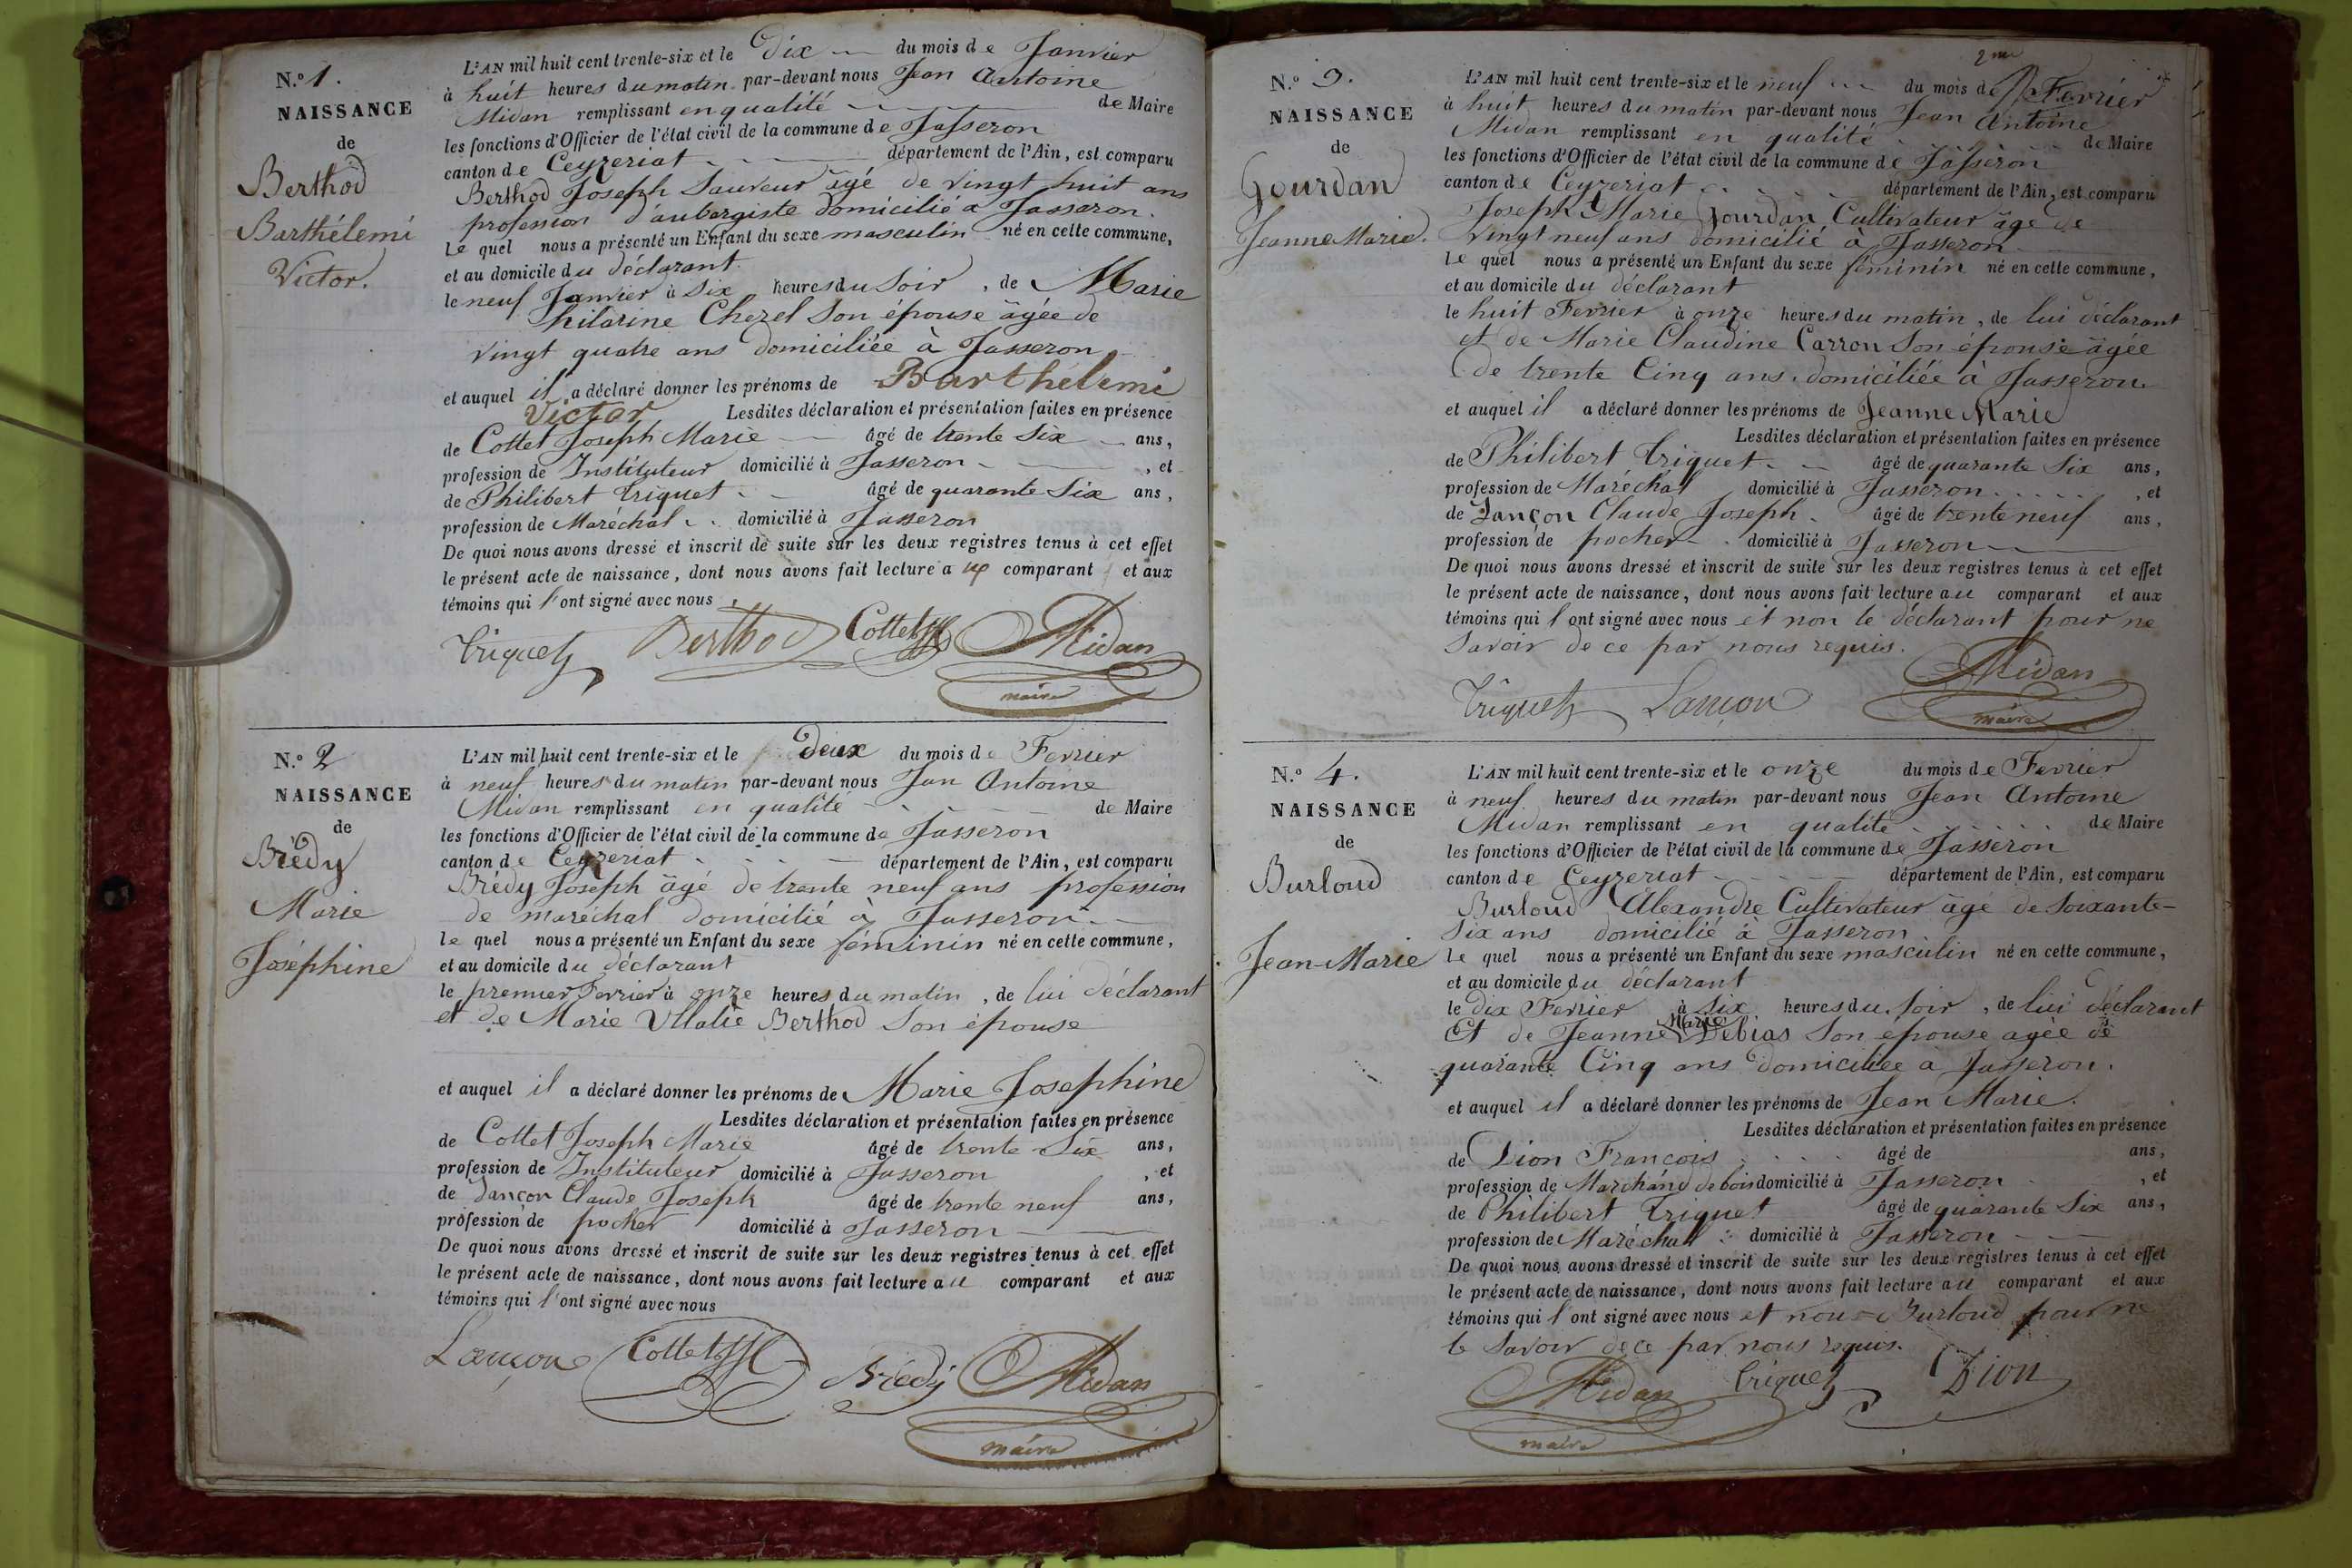 N.° 1.
NAISSANCE
de
Berthod
Barthélemi
Victor.
L'AN mil huit cent trente-six et le Dix du mois de Janvier
à huit heures du matin par-devant nous Jean Antoine
Midan remplissant en qualité de Maire
les fonctions d'Officier de l'état civil de la commune de Jasseron
canton de Ceyzeriat département de l'Ain, est comparu
Berthod Joseph Sauveur âgé de vingt huit ans
profession d'aubergiste domicilié à Jasseron.
le quel nous a présenté un Enfant du sexe masculin né en cette commune,
et au domicile du déclarant
le neuf Janvier à Six heures du Soir, de Marie
hilarine Chezel Son épouse âgée de
vingt quatre ans domiciliée à Jasseron
et auquel il a déclaré donner les prénoms de Barthélemi
Victor Lesdites déclaration et présentation faites en présence
de Cottet Joseph Marie âgé de trente Six ans,
profession de Instituteur domicilié à Jasseron, et
de Philibert Triquet âgé de quarante Six ans,
profession de Maréchal domicilié à Jasseron
De quoi nous avons dressé et inscrit de suite sur les deux registres tenus à cet effet
le présent acte de naissance, dont nous avons fait lecture a comparant et aux
témoins qui l'ont signé avec nous
Triquet Berthod Cottet Midan
maire
N.° 2
NAISSANCE
de
Brédy
Marie
Joséphine
L'AN mil huit cent trente-six et le Deux du mois de Ferrier
à neuf heures du matin par-devant nous Jan Antoine
Midan remplissant en qualité de Maire
les fonctions d'Officier de l'état civil de la commune de Jasseron
canton de Ceyzeriat département de l'Ain, est comparu
Brédy Joseph âgé de trente neuf ans profession
de maréchal domicilié à Jasseron
le quel nous a présenté un Enfant du sexe féminin né en cette commune,
et au domicile du déclarant
le premier Ferrier à onze heures du matin, de lui déclarant
et de Marie Ullalie Berthod Son épouse
et auquel il a déclaré donner les prénoms de Marie Josephine
Lesdites déclaration et présentation faites en présence
de Cottet Joseph Marie âgé de trente Six ans,
profession de Instituteur domicilié à Jasseron, et
de Jançon Claude Joseph âgé de trente neuf ans,
profession de pocher domicilié à Jasseron
De quoi nous avons dressé et inscrit de suite sur les deux registres tenus à cet effet
le présent acte de naissance, dont nous avons fait lecture au comparant et aux
témoins qui l'ont signé avec nous
Lançon Cottet Brédy Midan
maire
2me
N.° 3.
NAISSANCE
de
Gourdan
Jeanne Marie.
L'AN mil huit cent trente-six et le neuf du mois de Ferrier
à huit heures du matin par-devant nous Jean Antoine
Midan remplissant en qualité de Maire
les fonctions d'Officier de l'état civil de la commune de Jasseron
canton de Ceyzeriat département de l'Ain, est comparu
Joseph Marie Gourdan Cultivateur âgé de
vingt neuf ans domicilié à Jasseron
le quel nous a présenté un Enfant du sexe féminin né en cette commune,
et au domicile du déclarant
le huit Ferrier à onze heures du matin, de lui déclarant
et de Marie Claudine Carron Son épouse âgée
de trente Cinq ans, domiciliée à Jasseron.
et auquel il a déclaré donner les prénoms de Jeanne Marie
Lesdites déclaration et présentation faites en présence
de Philibert Triquet âgé de quarante Six ans,
profession de Maréchal domicilié à Jasseron, et
de Jançon Claude Joseph âgé de trente neuf ans,
profession de pocher domicilié à Jasseron
De quoi nous avons dressé et inscrit de suite sur les deux registres tenus à cet effet
le présent acte de naissance, dont nous avons fait lecture au comparant et aux
témoins qui l'ont signé avec nous et non le déclarant pour ne
Savoir de ce par nous requis.
Triquet Lançon Midan
maire
N.° 4.
NAISSANCE
de
Burloud
Jean-Marie
L'AN mil huit cent trente-six et le onze du mois de Ferrier
à neuf heures du matin par-devant nous Jean Antoine
Midan remplissant en qualité de Maire
les fonctions d'Officier de l'état civil de la commune de Jasseron
canton de Ceyzeriat département de l'Ain, est comparu
Burloud Alexandre Cultivateur âgé de Soixante-
Six ans domicilié à Jasseron
le quel nous a présenté un Enfant du sexe masculin né en cette commune,
et au domicile du déclarant
le dix Ferrier à Six heures du Soir, de lui déclarant
Et de Jeanne Marie Debias Son épouse agée de
quarante Cinq ans domiciliée à Jasseron.
et auquel il a déclaré donner les prénoms de Jean Marie.
Lesdites déclaration et présentation faites en présence
de Dion François âgé de ans,
profession de Marchand de bois domicilié à Jasseron, et
de Philibert Triquet âgé de quarante Six ans,
profession de Maréchal domicilié à Jasseron
De quoi nous avons dressé et inscrit de suite sur les deux registres tenus à cet effet
le présent acte de naissance, dont nous avons fait lecture au comparant et aux
témoins qui l'ont signé avec nous et non Burloud pour ne
le Savoir de ce par nous requis.
Midan Triquet Dion
maire